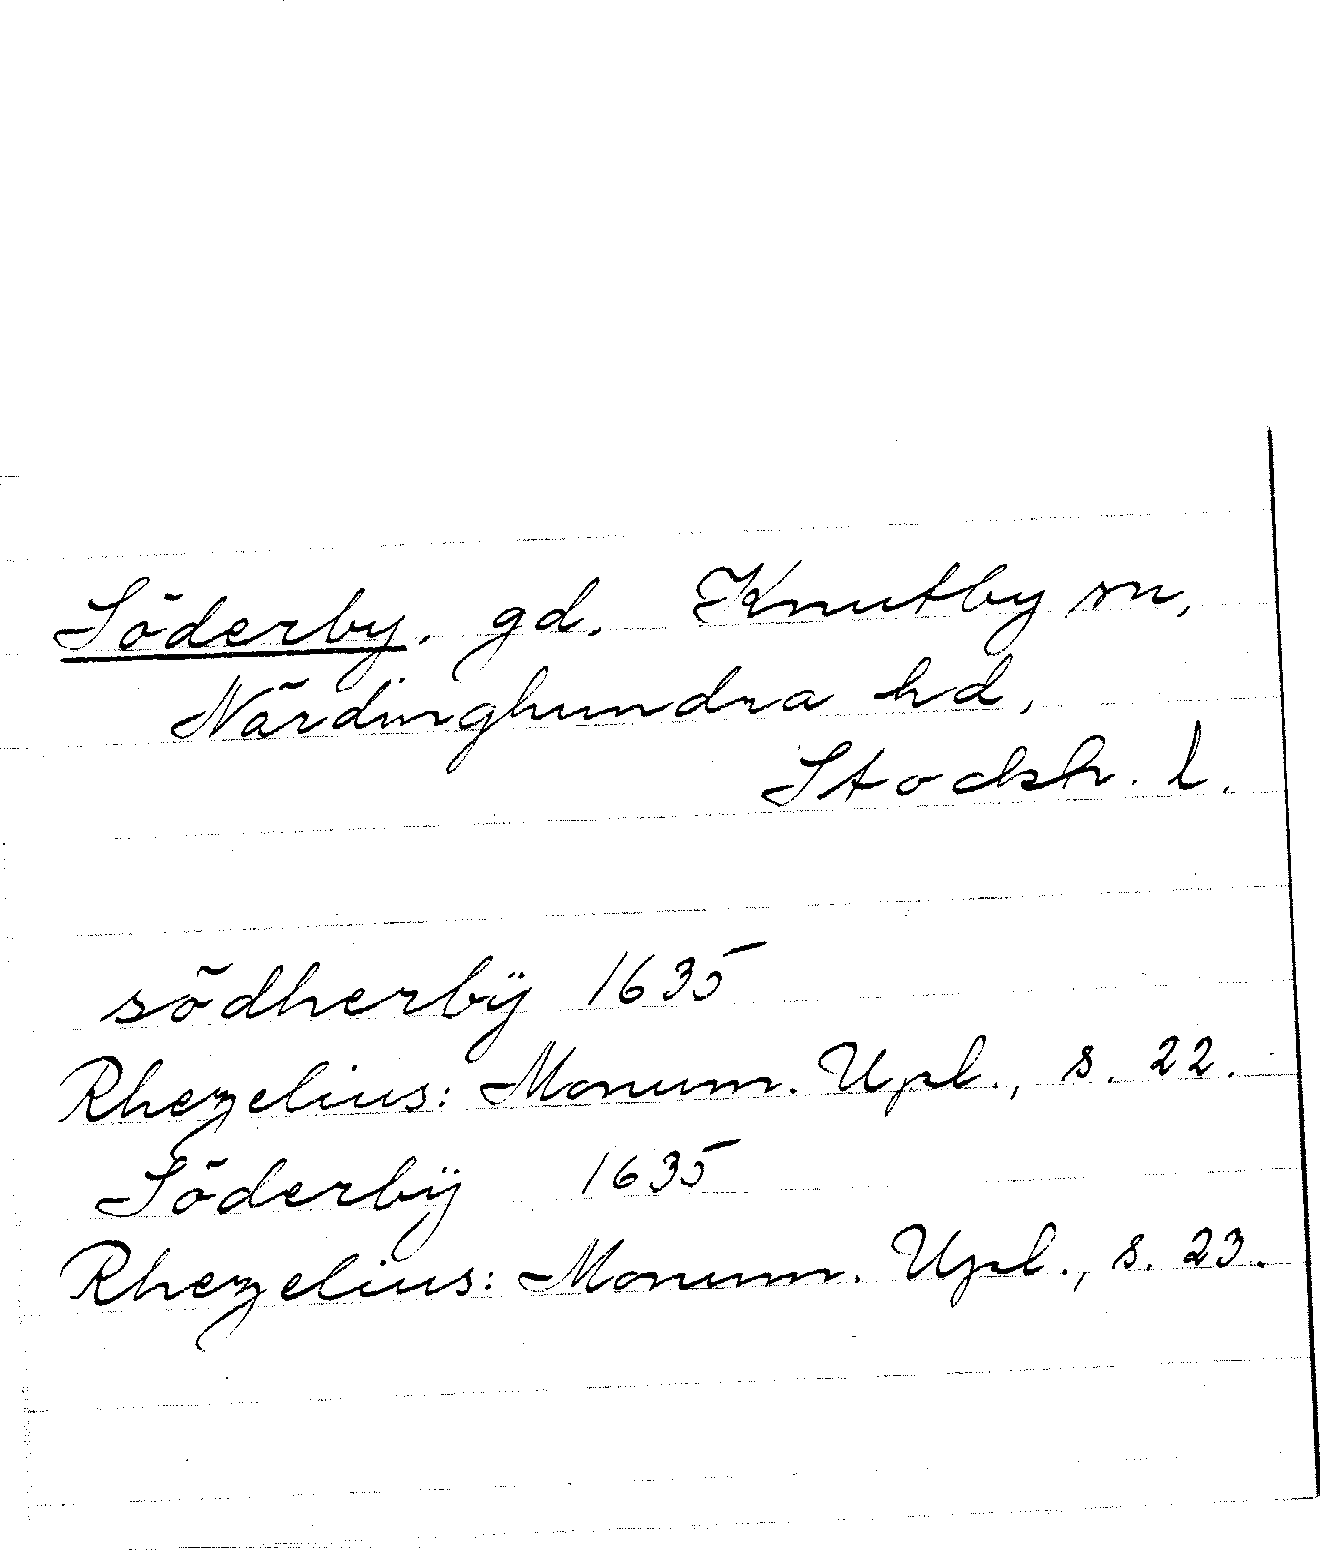 Söderby. gd. Knutby sn,
Närdinghundra hd,
Stocksh. l.
södherbÿ 1635
Rhezelius: Monum. Upl., s. 22.
Söderbÿ 1635
Rhezelius: Monum. Upl., s. 23.